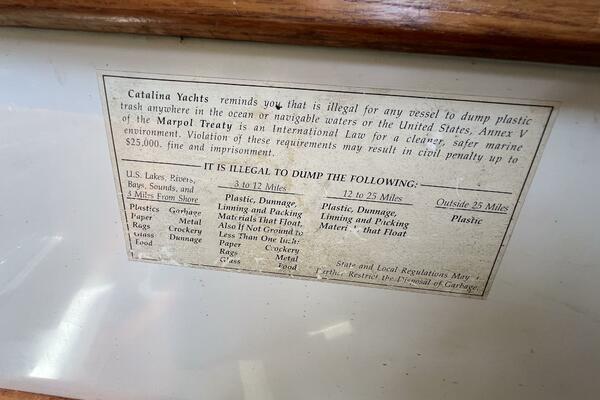 Catalina Yachts reminds you that is illegal for any vessel to dump plastic
trash anywhere in the ocean or navigable waters or the United States, Annex V
of the Marpol Treaty is an International Law for a cleaner, safer marine
environment. Violation of these requirements may result in civil penalty up to
$25,000. fine and imprisonment.
IT IS ILLEGAL TO DUMP THE FOLLOWING:
U.S. Lakes, Rivers,
Bays, Sounds, and
3 Miles From Shore
Plastics Garbage
Paper Metal
Rags Crockery
Glass Dunnage
Food
3 to 12 Miles
Plastic, Dunnage,
Linning and Packing
Materials That Float,
Also If Not Ground to
Less Than One Inch:
Paper Crockery
Rags Metal
Glass Food
12 to 25 Miles
Plastic, Dunnage,
Linning and Packing
Materials that Float
Outside 25 Miles
Plastic
State and Local Regulations May
Further Restrict the Disposal of Garbage.